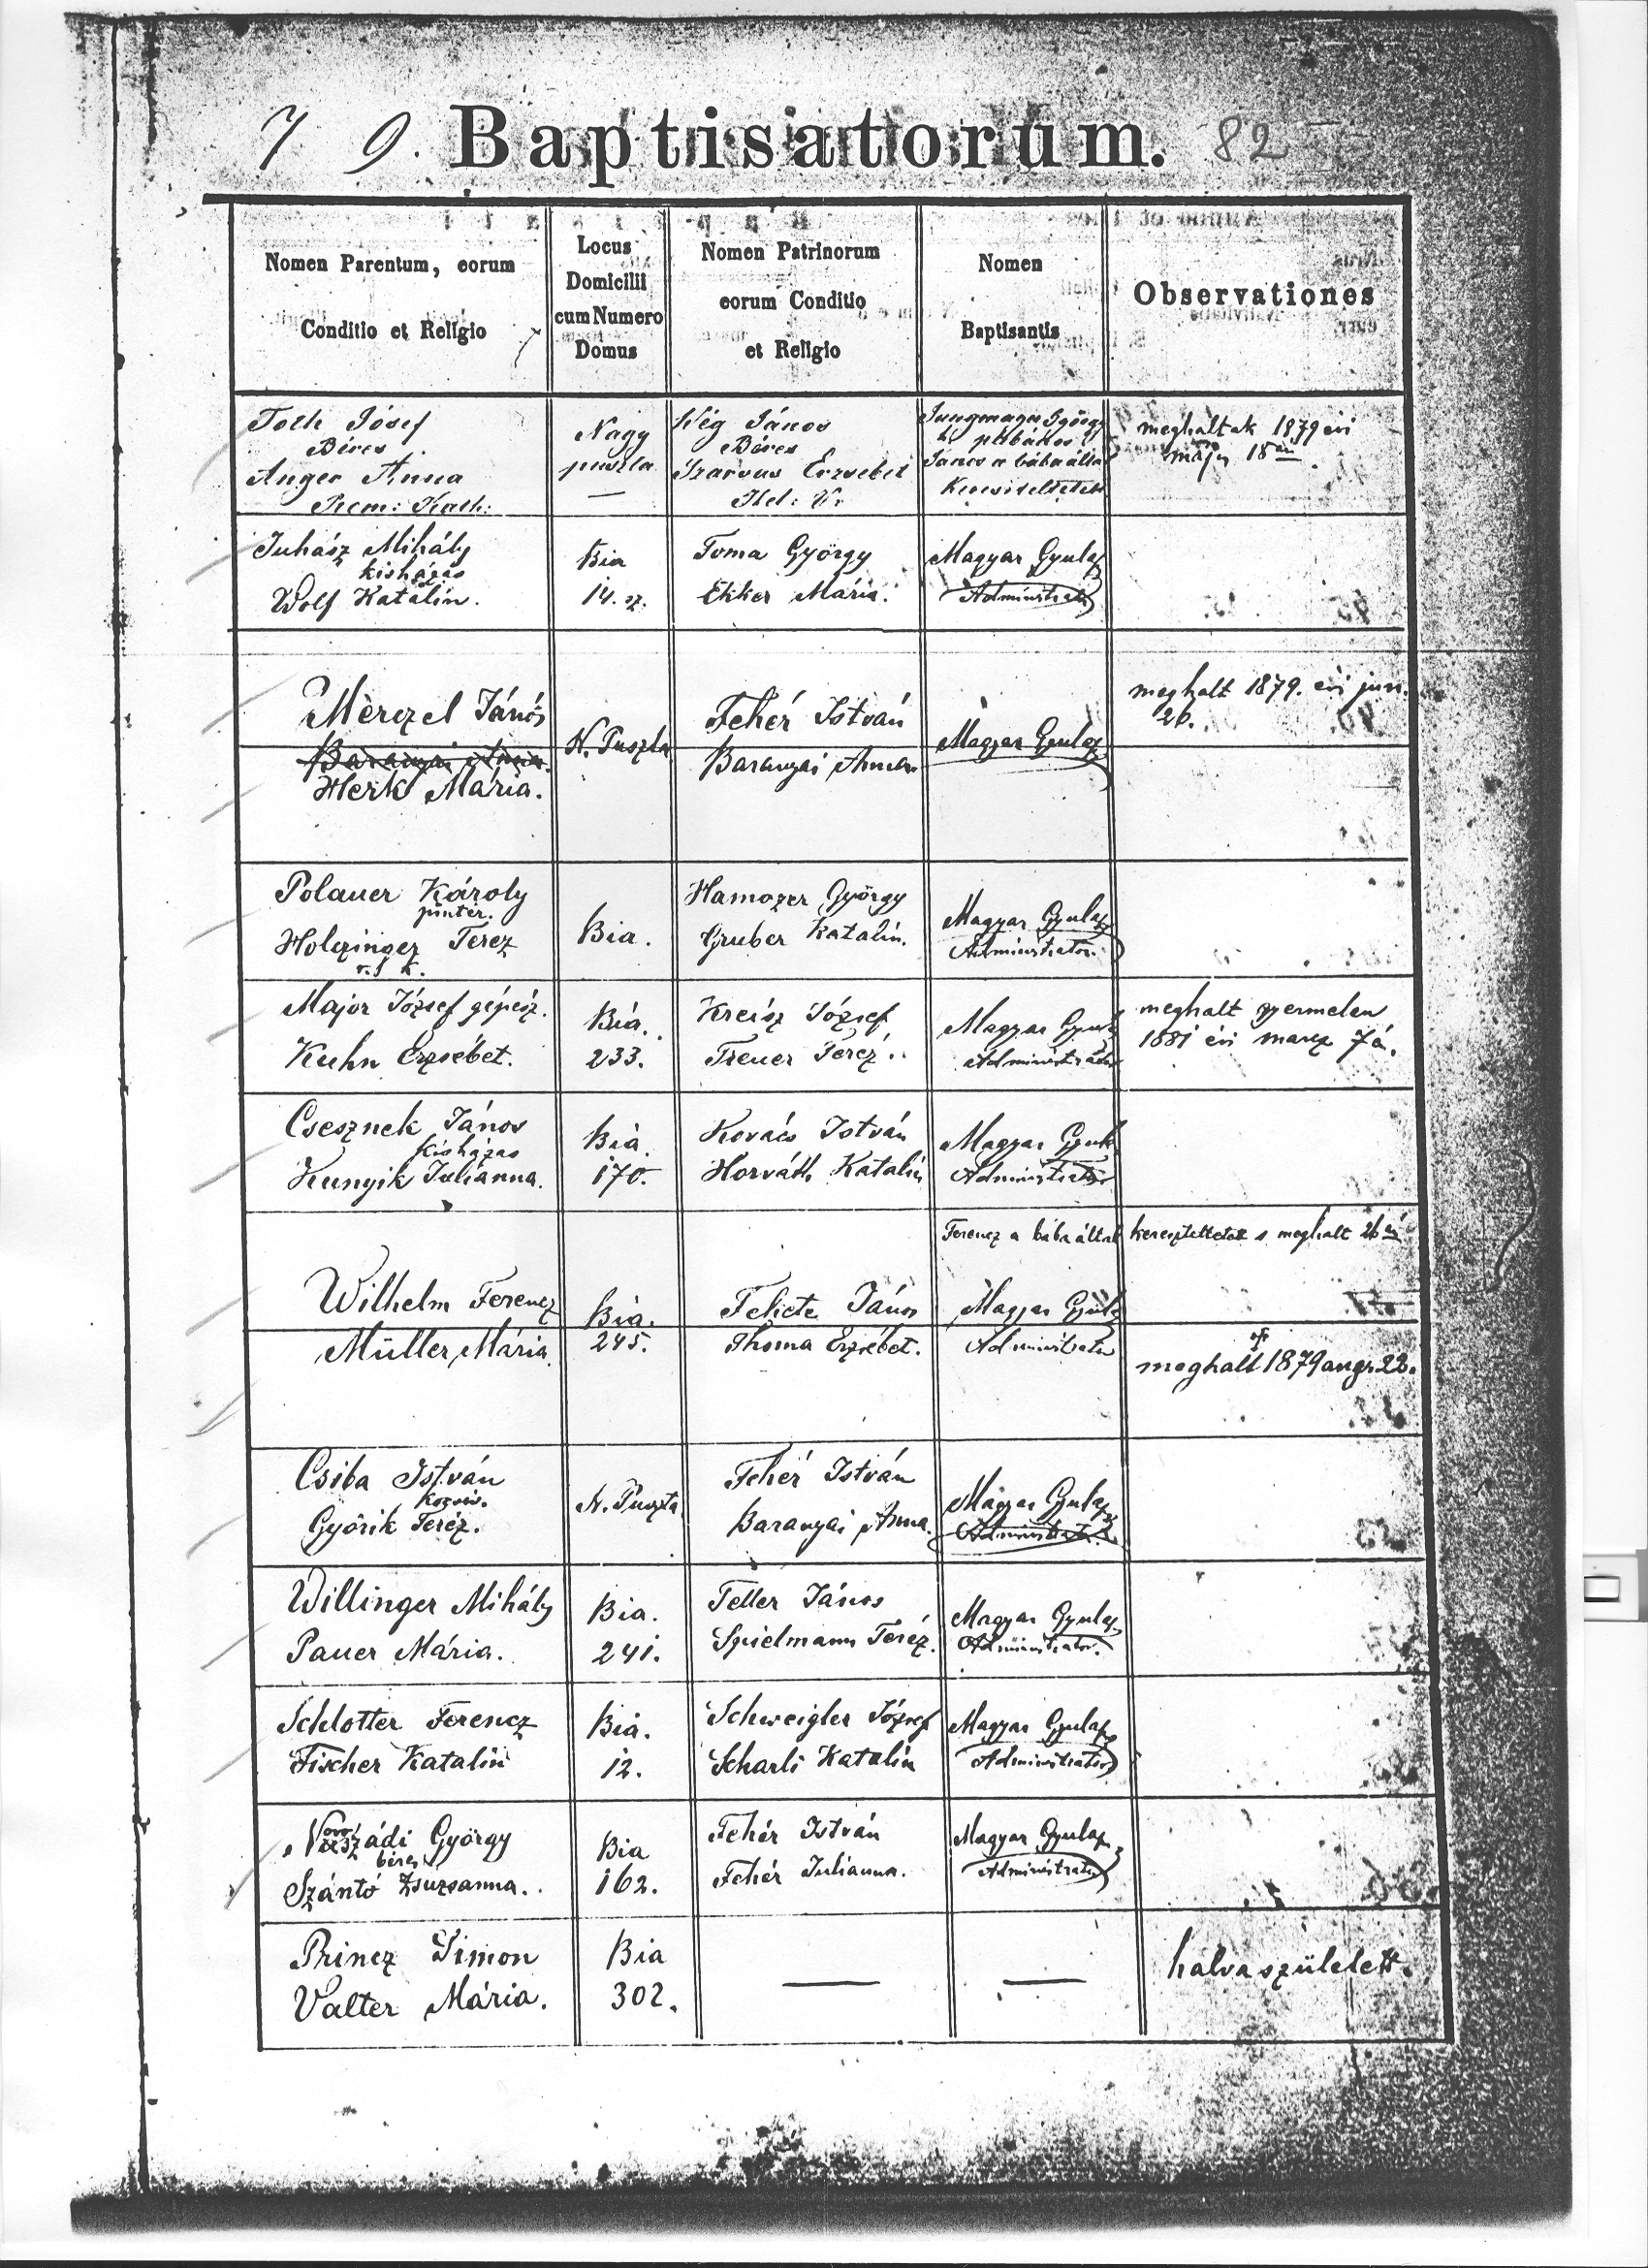 7 9. Baptisatorum. 82
Nomen Parentum, eorum
Conditio et Religio
Locus
Domicilii
cum Numero
Domus
Nomen Patrinorum
eorum Conditio
et Religio
Nomen
Baptisantis
Observationes
Toth Jósef
Béres
Anger Anna
Rom: Kath:
Nagy
puszta
—
Vég János
Béres
Szarvas Erzsebet
János a bába által
Kereszteltetett
meghaltak 1879 évi
máj 18án
Juhász Mihály
kisházas
Wolf Katalin.
Bia
14. sz.
Toma György
Ekker Mária.
Magyar Gyula
Administrator
Mèrczel János
Baranyai Anna
Herk Mária.
N. Puszta
Fehér István
Baranyai Anna
Magyar Gyula
meghalt 1879. évi jun.
26.
Polauer Károly
pintér.
Holczinger Terez
r. k.
Bia.
Hamozer György
Gruber Katalin.
Magyar Gyula
Administrator.
Major József gépész.
Kuhn Erzsébet.
Bia.
233.
Kreisz József
Treuer Teréz.
Magyar Gyula
Administrator
meghalt
1881 évi marcz 7á.
Csesznek János
Kisházas
Kunyik Julianna.
Bia.
170.
Kovács István
Horváth Katalin
Magyar Gyula
Administrator
Ferencz a bába által kereszteltetett s meghalt 26án
Wilhelm Ferencz
Müller Mária.
Bia.
245.
Fekete János
Thoma Erzsébet.
Magyar Gyula
Administrator
meghalt 1879 aug. 22.
Csiba István
kocsis.
Györik Teréz.
N. Puszta
Fehér István
Baranyai Anna.
Magyar Gyula
Administrator.
Willinger Mihály
Pauer Mária.
Bia.
241.
Teller János
Spielmann Teréz.
Magyar Gyula
Administrator.
Schlotter Ferencz
Fischer Katalin
Bia.
12.
Schweigler József
Scharli Katalin
Magyar Gyula
Administrator
György
béres
Szántó Zsuzsanna.
Bia
162.
Fehér István
Fehér Julianna.
Magyar Gyula
Administrator
Princz Simon
Valter Mária.
Bia
302.
—
—
halva született.